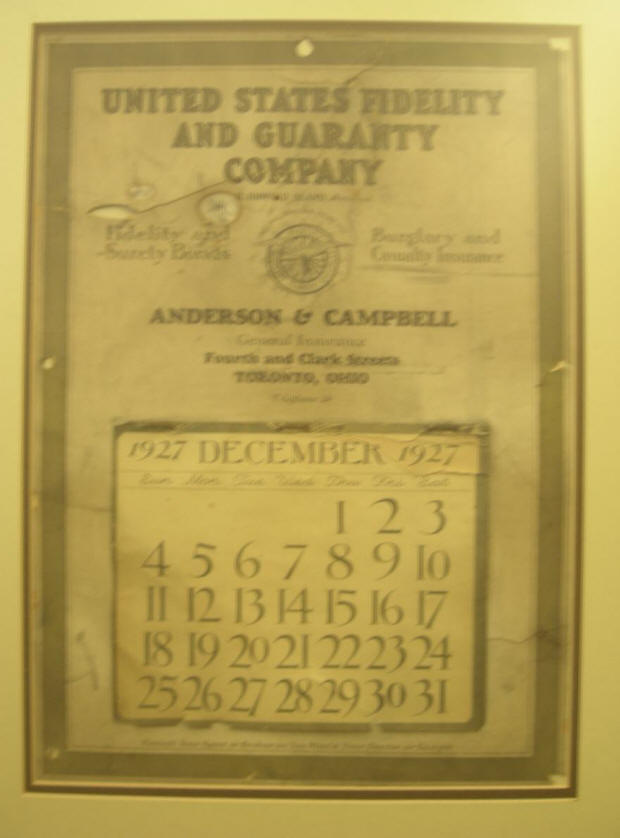 UNITED STATES FIDELITY
AND GUARANTY
COMPANY
Fidelity and
Surety Bonds
Burglary and
Casualty Insurance
ANDERSON & CAMPBELL
General Insurance
Fourth and Clark Streets
TORONTO, OHIO
1927 DECEMBER 1927
Sun Mon Tue Wed Thu Fri Sat
1 2 3
4 5 6 7 8 9 10
11 12 13 14 15 16 17
18 19 20 21 22 23 24
25 26 27 28 29 30 31